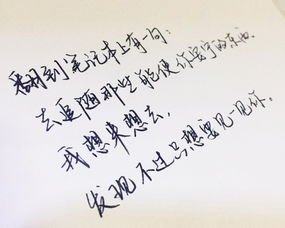 翻到笔记本上有句:
去追随那些能使你安宁的东西.
我想来想去,
发现不过只想要见一见你.